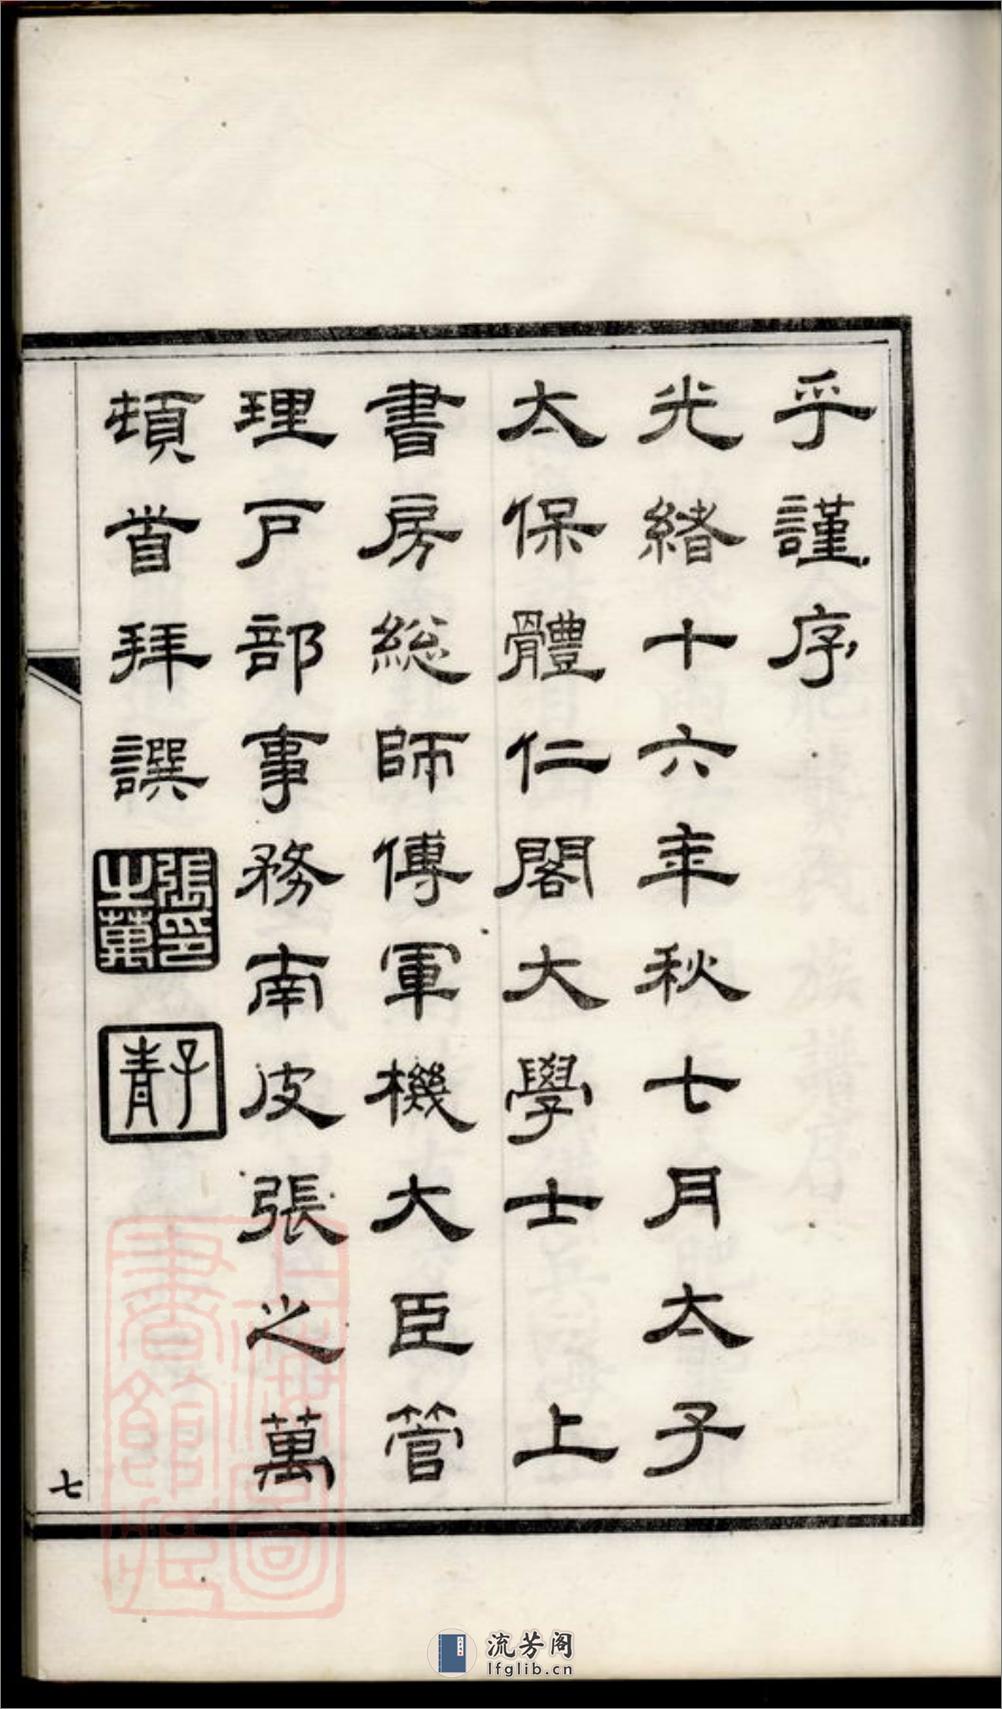 乎謹序
光緒十六年秋七月太子
太保體仁閣大學士上
書房總師傅軍機大臣管
理戸部事務南皮張之萬
頓首拜譔
張之萬印
子青
七
上海圖書館藏
流芳阁
lfglib.cn